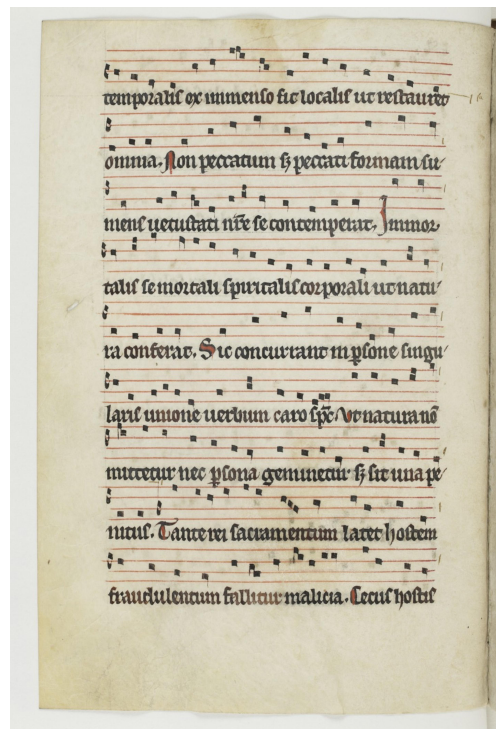 temporalis ex immenso fit localis ut restauret
omnia. Non peccatum s; peccati formam su
mens uetustati nr̄e se contemperat. Inmor
talis se mortali spiritalis corporali ut natu
ra conferat. Sic concurrunt in ꝑsone singu
laris unione uerbum caro sp̄c. Ut natura nō
mittetur nec ꝑsona geminetur s; sit una pe
nitus. Tante rei sacramentum latet hostem
fraudulentum fallitur malicia. Cecus hostis